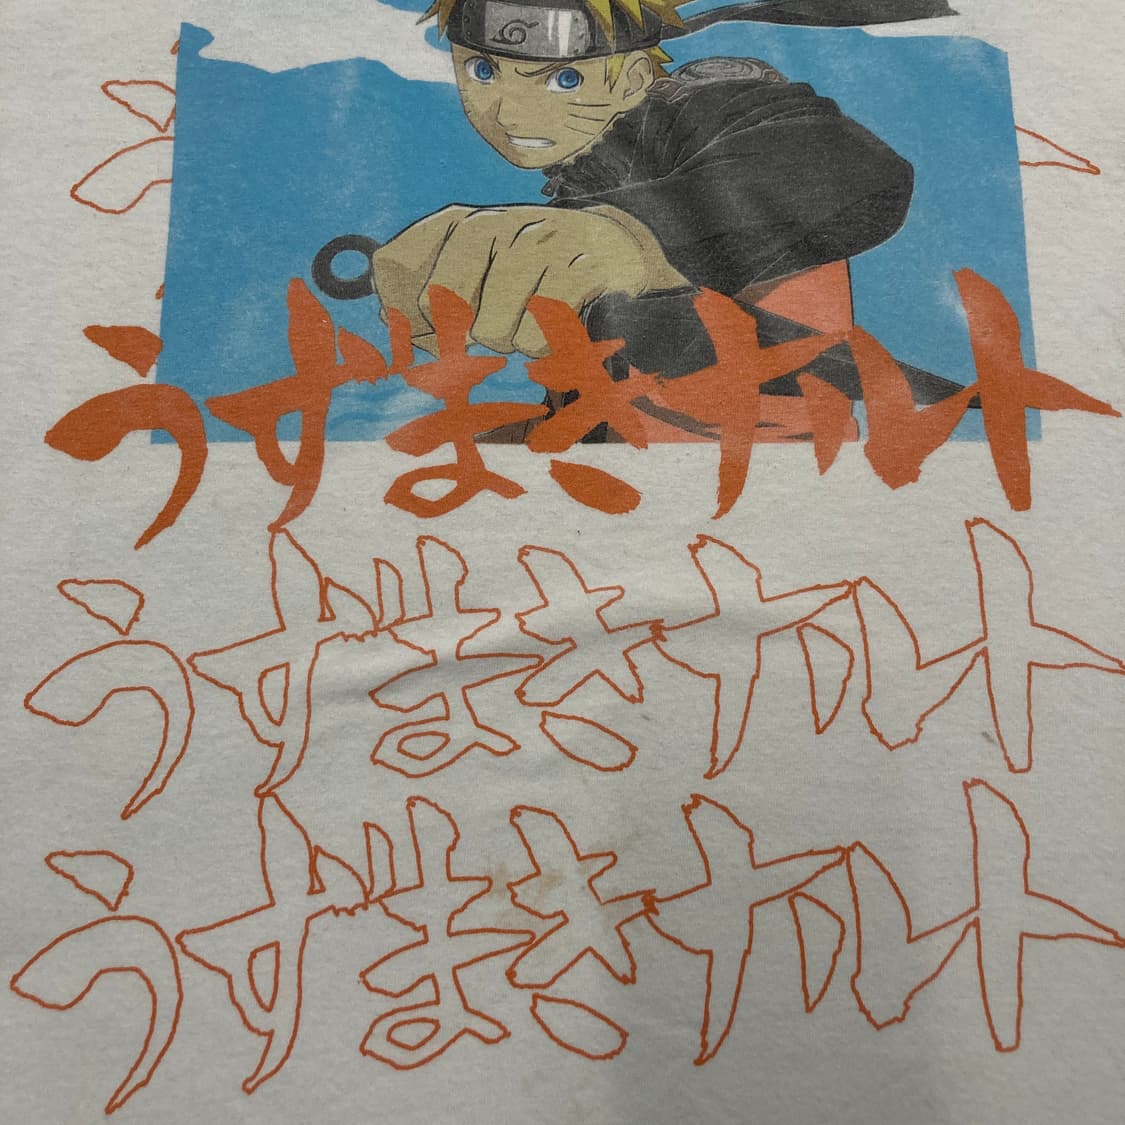 うずまきナルト
うずまきナルト
うずまきナルト